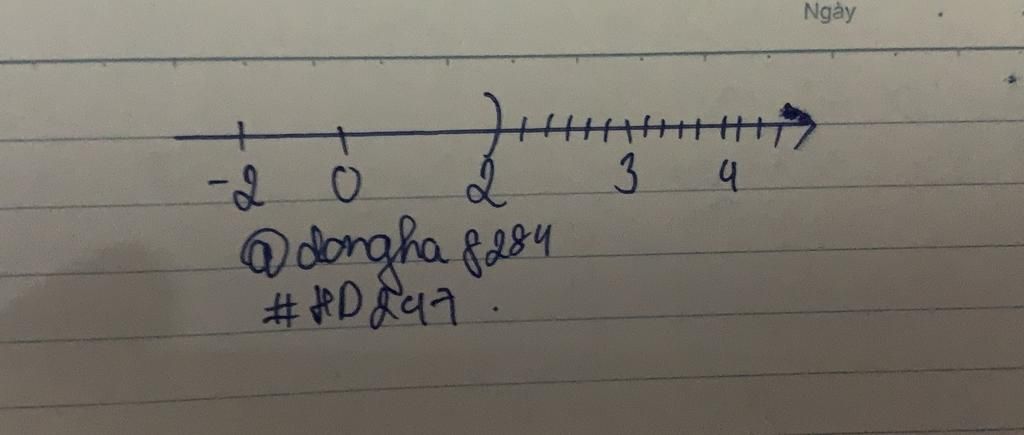 Ngày
-2 0 2 3 4
@dongha 8284
#HD247.